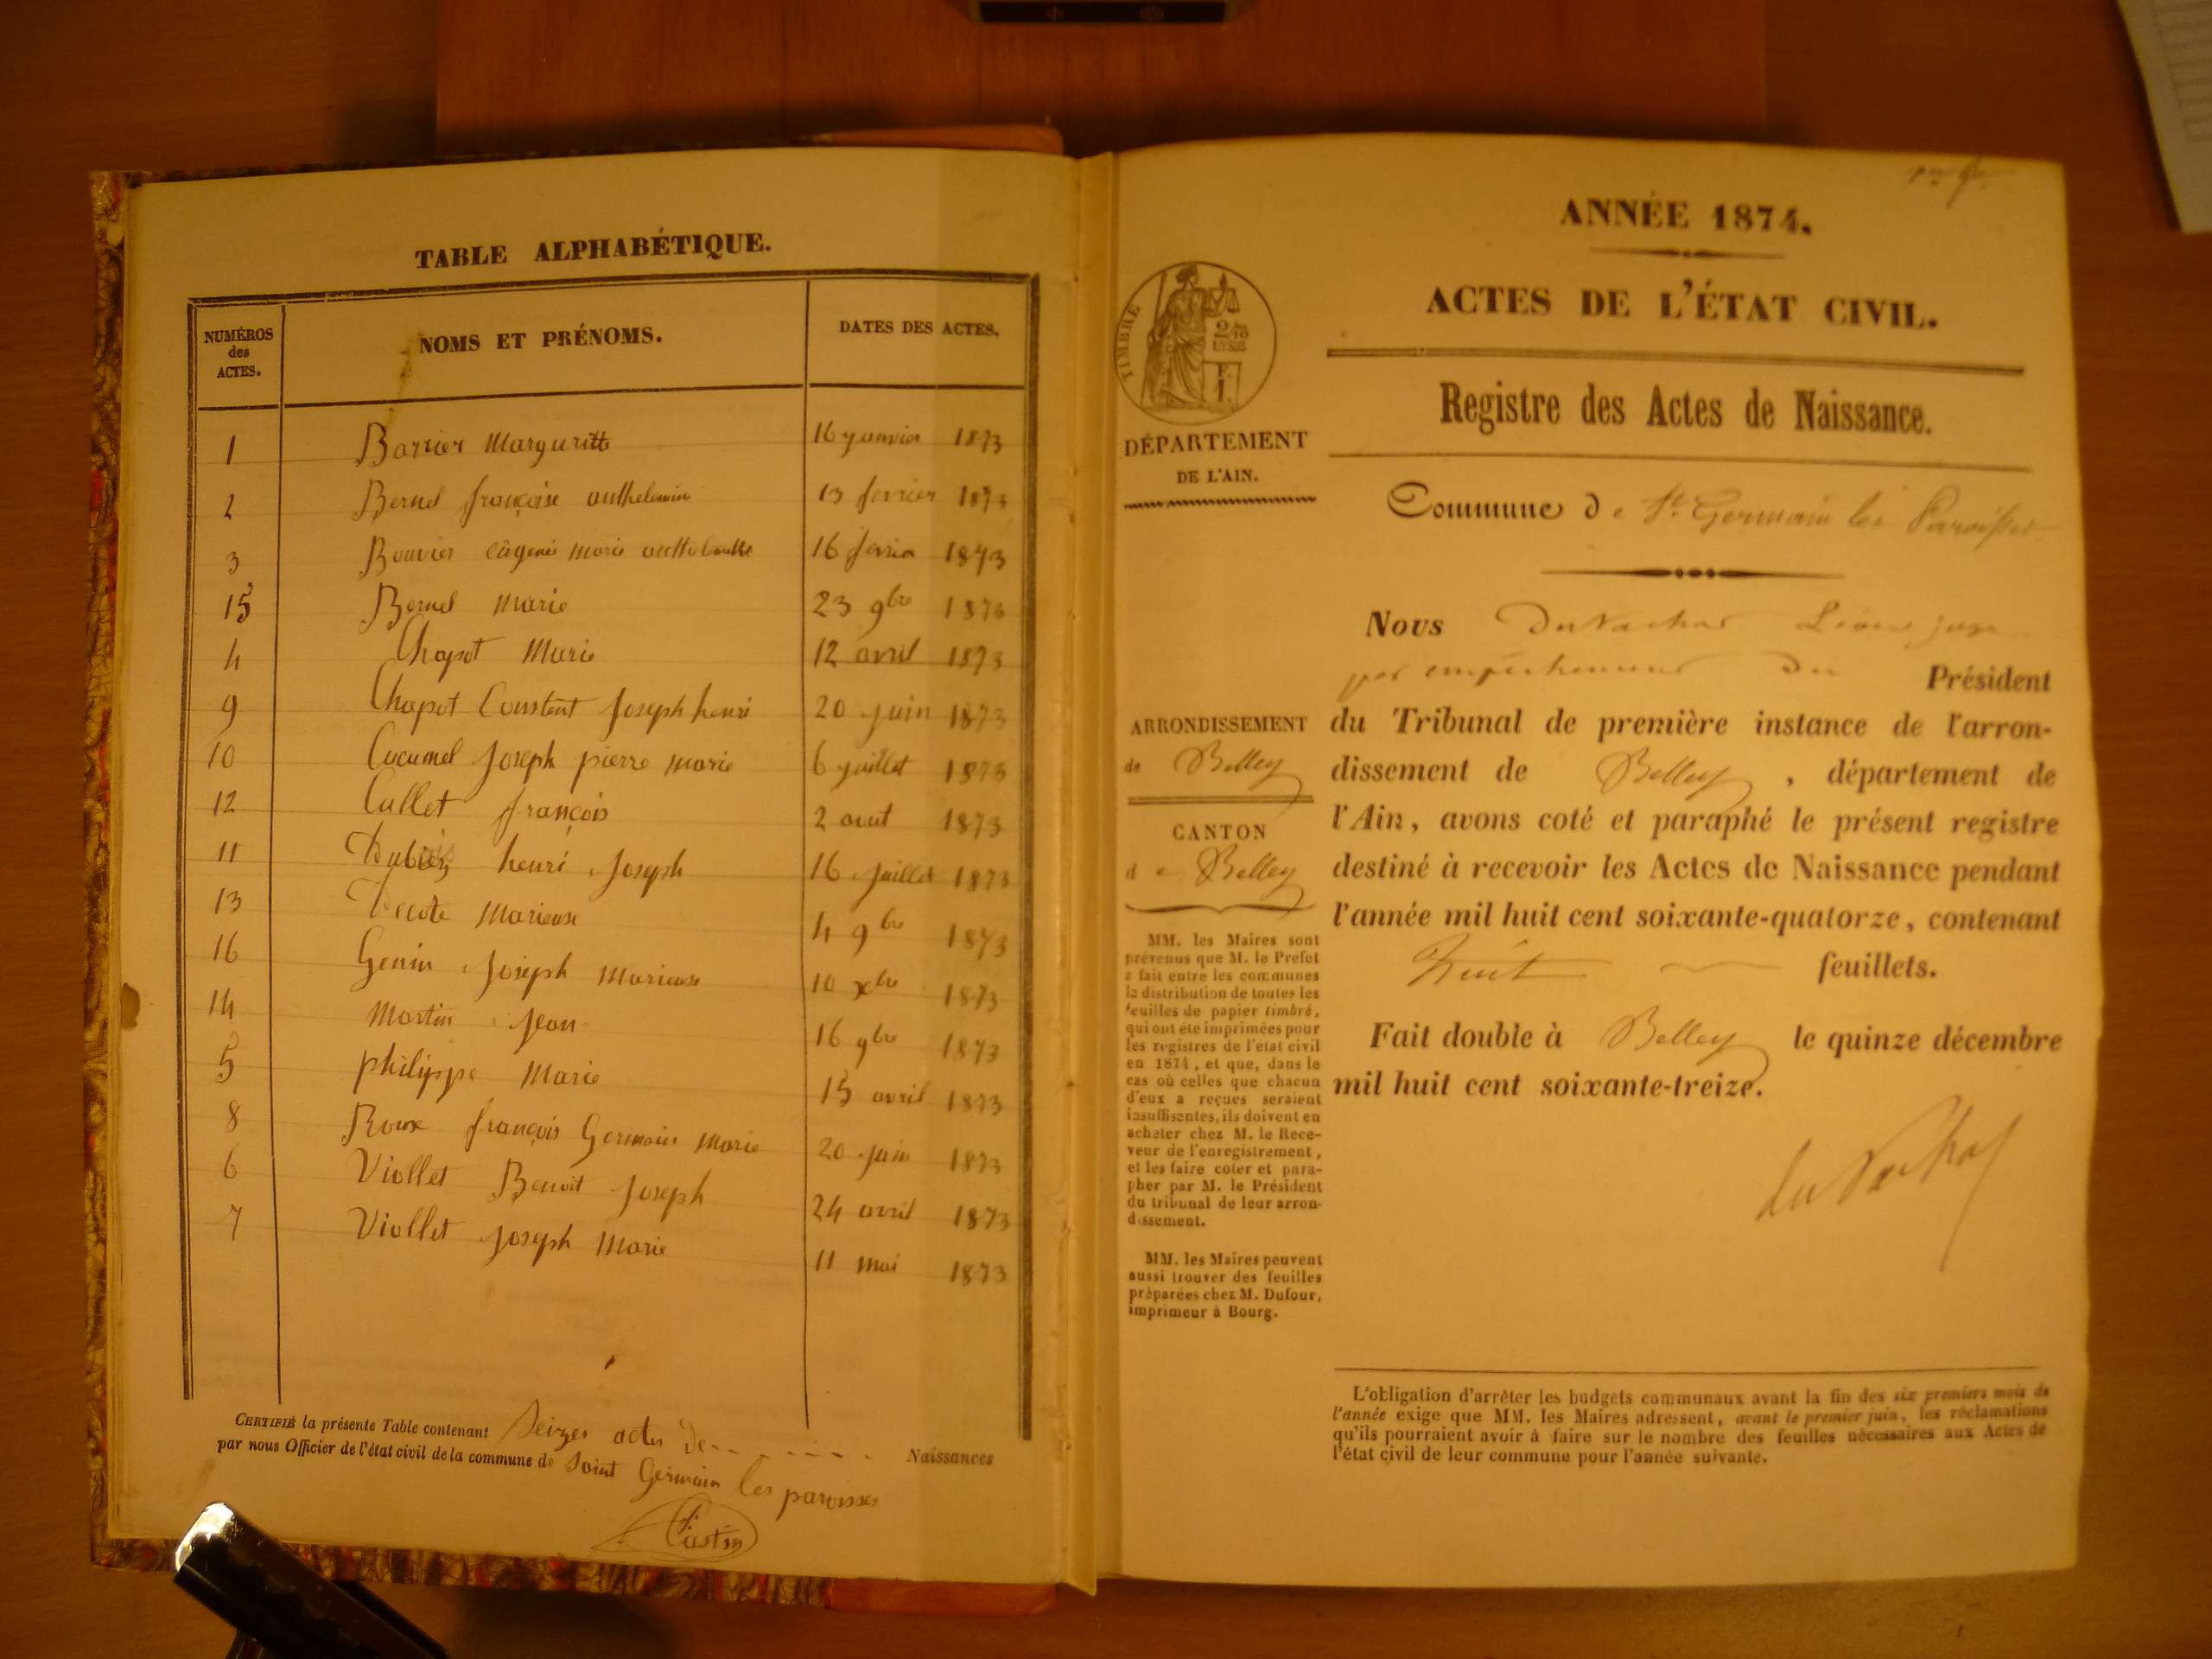 TABLE ALPHABÉTIQUE.
NUMÉROS des ACTES. NOMS ET PRÉNOMS. DATES DES ACTES.
1 Barrier Margueritte 16 janvier 1873
2 Bernel françoise anthelmin 13 fevrier 1873
3 Bouvier Eugenie Marie 16 fevrier 1873
15 Bernel Marie 23 9bre 1873
4 Chapot Marie 12 avril 1873
9 Chapot Constent Joseph henri 20 juin 1873
10 Cucumel Joseph pierre marie 6 juillet 1873
12 Cullet françois 2 aout 1873
11 henri Joseph 16 juillet 1873
13 Decote Marieuse 4 9bre 1873
16 Genin Joseph Marieuse 10 xbre 1873
14 Martin Jean 16 9bre 1873
5 philippe Marie 15 avril 1873
8 Roux françois Germain Marie 20 juin 1873
6 Viollet Benoit Joseph 24 avril 1873
7 Viollet Joseph Marie 11 mai 1873
CERTIFIÉ la présente Table contenant Seizes actes de Naissances
par nous Officier de l'état civil de la commune de Saint Germain les paroisses
ANNÉE 1874.
ACTES DE L'ÉTAT CIVIL.
Registre des Actes de Naissance.
TIMBRE
DÉPARTEMENT
DE L'AIN.
ARRONDISSEMENT
de Belley
CANTON
de Belley
MM. les Maires sont
prévenus que M. le Préfet
a fait entre les communes
la distribution de toutes les
feuilles de papier timbré,
qui ont été imprimées pour
les registres de l'état civil
en 1874, et que, dans le
cas où celles que chacun
d'eux a reçues seraient
insuffisantes, ils doivent en
acheter chez M. le Rece-
veur de l'enregistrement,
et les faire coter et para-
pher par M. le Président
du tribunal de leur arron-
dissement.
MM. les Maires peuvent
aussi trouver des feuilles
préparées chez M. Dufour,
imprimeur à Bourg.
Commune de St Germain les Paroisses
Nous juge
par empêchement du Président
du Tribunal de première instance de l'arron-
dissement de Belley, département de
l'Ain, avons coté et paraphé le présent registre
destiné à recevoir les Actes de Naissance pendant
l'année mil huit cent soixante-quatorze, contenant
huit feuillets.
Fait double à Belley le quinze décembre
mil huit cent soixante-treize.
L'obligation d'arrêter les budgets communaux avant la fin des six premiers mois de
l'année exige que MM. les Maires adressent, avant le premier juin, les réclamations
qu'ils pourraient avoir à faire sur le nombre des feuilles nécessaires aux Actes de
l'état civil de leur commune pour l'année suivante.